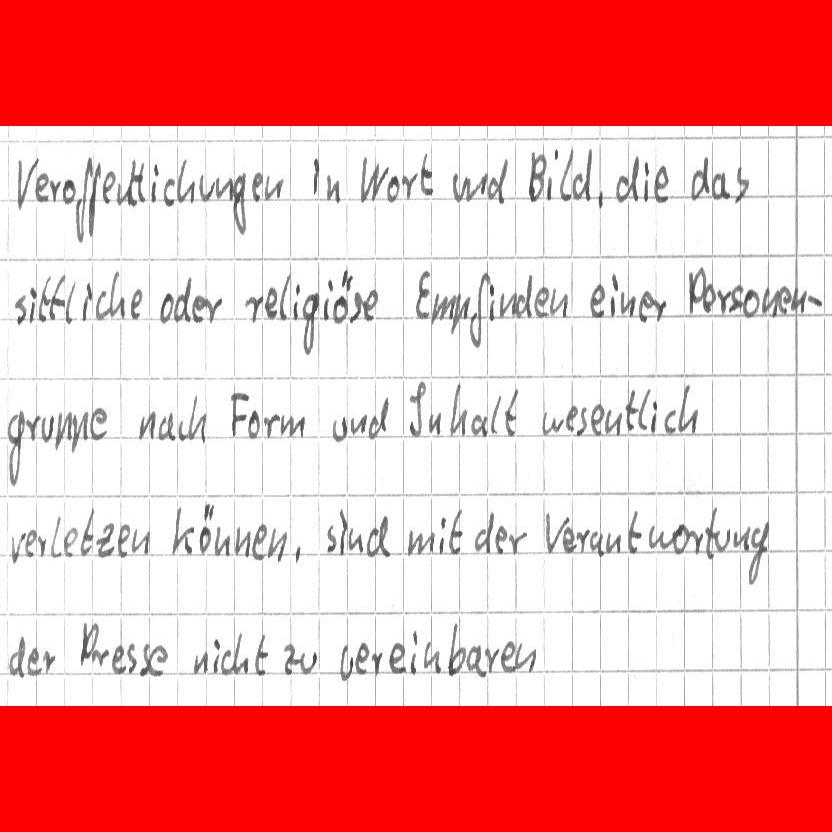 Veroffentlichungen in Wort und Bild, die das
sittliche oder religiöse Empfinden einer Personen-
gruppe nach Form und Inhalt wesentlich
verletzen können, sind mit der Verantwortung
der Presse nicht zu vereinbaren